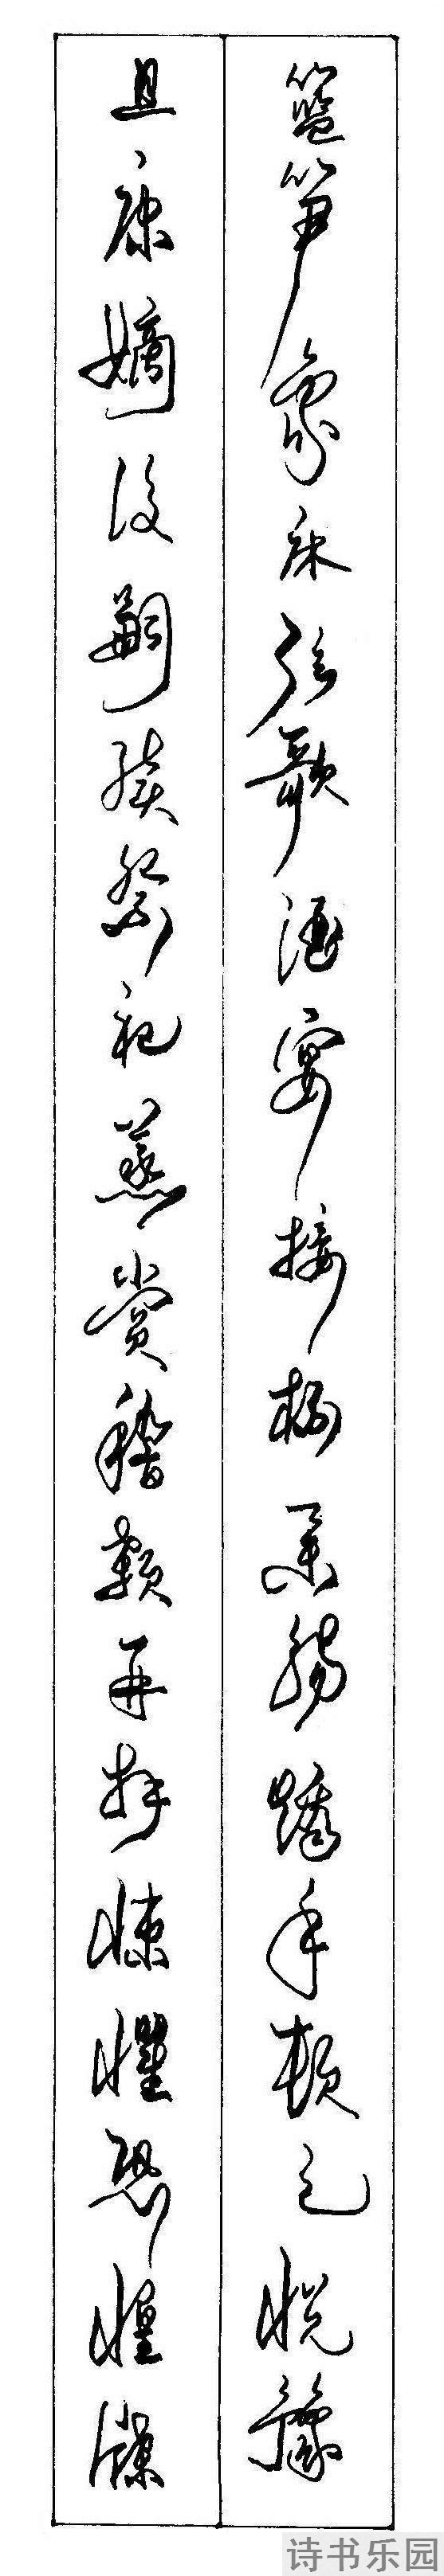 籃笋象床弦歌酒宴接杯舉觴矯手頓足悅豫
且康嫡後嗣續祭祀蒸嘗稽顙再拜悚懼恐惶牒
诗书乐园